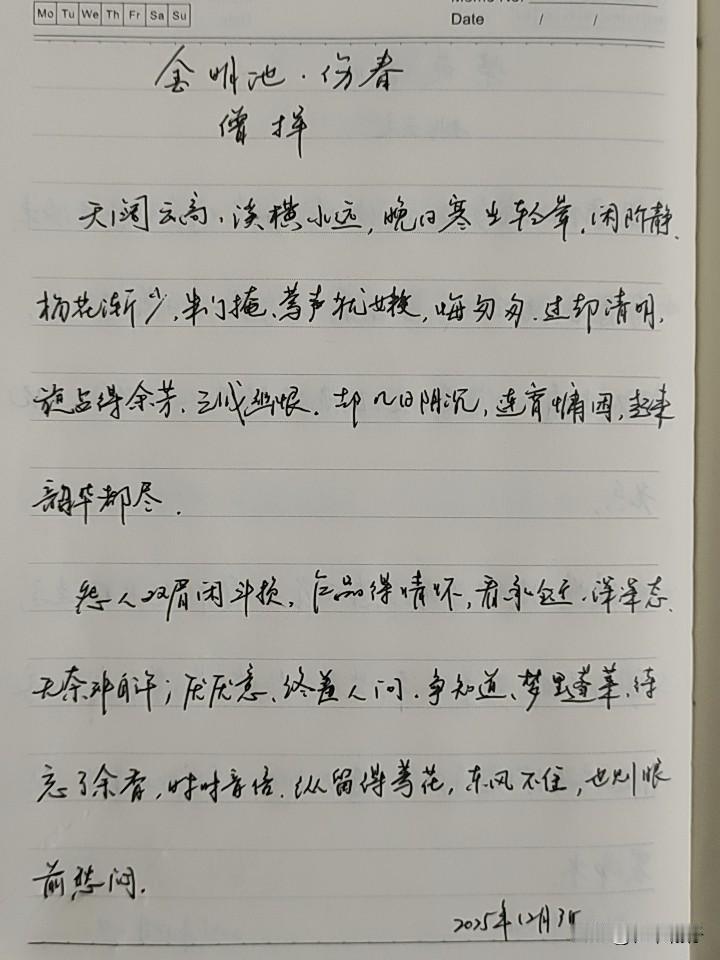 Mo Tu We Th Fr Sa Su
Memo No.
Date / /
金明池·伤春
僧挥
天阔云高,溪横水远,晚日寒生轻晕,闲阶静、
杨花渐少,朱门掩、莺声犹嫩,悔匆匆、过却清明,
旋占得余芳、已成幽恨.却几日阴沉,连宵慵困,起来
韶华都尽.
怨人双眉闲斗损,乍品得情怀,看承全近.深深态、
无奈非自许;厌厌意、终羞人问.争知道、梦里蓬莱,待
忘了余香,时时音信.纵留得莺花,东风不住,也则眼
前愁闷.
2025年12月3日